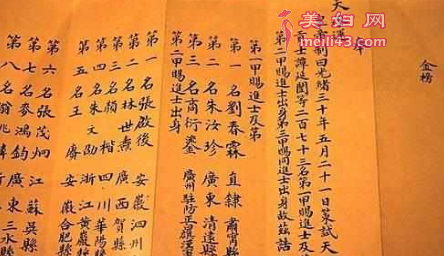 美妇网
meili43.com
金榜
天
帝制曰光緒三十年五月二十一日策試天
貢士譚延闓等二百七十三名第一甲賜進士及第
二甲賜進士出身第三甲賜同進士出身故茲誥
第一甲賜進士及第
第一名劉春霖 直隸肅寧縣
第二名朱汝珍 廣東清遠縣
第三名商衍鎏 廣州駐防正旗漢
第二甲賜進士出身
第一名張啟後 安徽泗州
第二名林世燾 廣西賀縣
第三名 四川華陽縣
第四名朱文劭 浙江黃巖縣
第五名王賡 安徽合肥縣
第六名張茂炯 江蘇吳縣
第七名麥鴻鈞 廣東三水縣
第八名翁兆